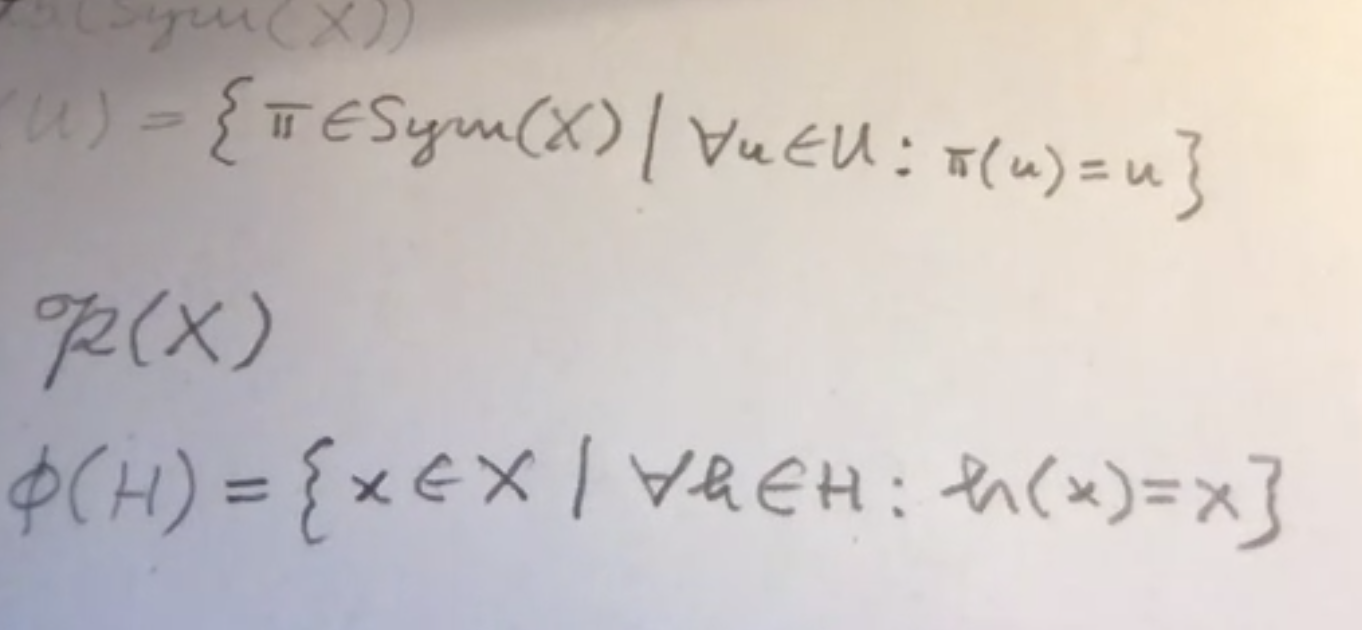 (Sym(X))
(U) = {π ∈ Sym(X) | ∀u ∈ U : π(u) = u}
𝒫(X)
ϕ(H) = {x ∈ X | ∀h ∈ H : h(x) = x}